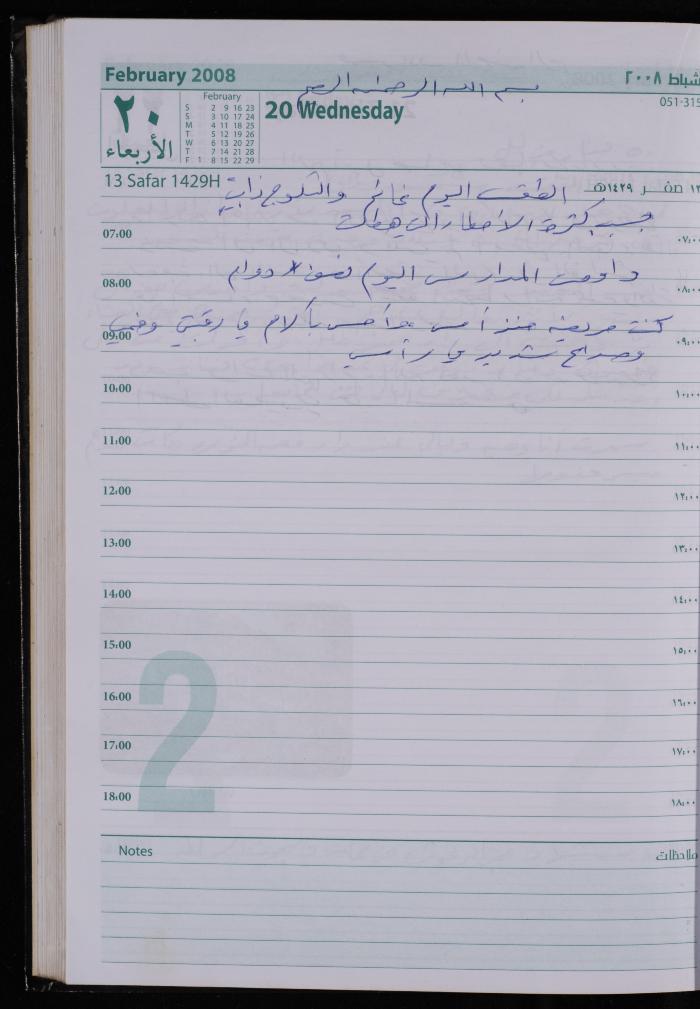 February 2008 شباط ٢٠٠٨
بسم الله الرحمن الرحيم
٢٠ الأربعاء
February
S 2 9 16 23
S 3 10 17 24
M 4 11 18 25
T 5 12 19 26
W 6 13 20 27
T 7 14 21 28
F 1 8 15 22 29
20 Wednesday
051-315
13 Safar 1429H ١٣ صفر ١٤٢٩هـ
الطقس اليوم غائم والثلوج ذابت
بسبب كثرة الأمطار التي هطلت
07:00 ٠٧:٠٠
داومت المدارس اليوم نصف دوام
08:00 ٠٨:٠٠
كنت مريضة منذ أمس وأحس بآلام في رقبتي وفمي
09:00 ٠٩:٠٠
وصداع شديد في رأسي
10:00 ١٠:٠٠
11:00 ١١:٠٠
12:00 ١٢:٠٠
13:00 ١٣:٠٠
14:00 ١٤:٠٠
15:00 ١٥:٠٠
16:00 ١٦:٠٠
17:00 ١٧:٠٠
18:00 ١٨:٠٠
2
Notes ملاحظات